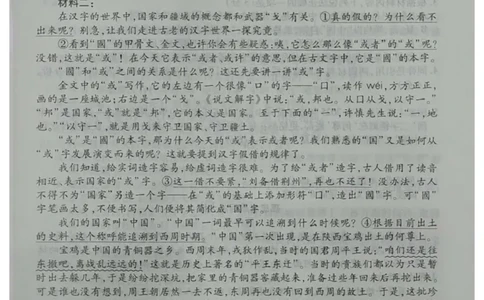 材料二：
在汉字的世界中，国家和疆域的概念都和武器“戈”有关。①真的假的？为什么看不
出来呢？别急，让我们走进古老的汉字世界一探究竟。
②看到“國”的甲骨文、金文，也许你会有些疑惑：咦，它怎么那么像“或者”的“或”呢？
没错，这就是“或”！在今天它表示“或者、或许”的意思，但在古文字中，它是“國”的本字。
“國”和“或”之间的关系是什么呢？这还先要讲一讲“或”字。
金文中的“或”写作，它的左边有一个很像“口”的字——“囗”，读作 wéi，方方正正，
画的是一座城池；右边是一个“戈”。《说文解字》中说：“或，邦也。从囗从戈，以守一。”
“邦”是国家，“或”就是“邦”，它的本义是国家。至于下面的“一”，许慎先生说：“一，地
也。”“以守一”，就是用戈来守卫国家、守卫疆土。
“或”是“國”的本字，那为什么今天的“或”表示或者呢？我们熟悉的“国”又是如何从
“或”字发展演变而来的呢？这就要提到汉字假借的规律了。
我们知道，给实词造字容易，给虚词造字很难。为了给“或者”造字，古人借用了读音
相近、表示国家的“或”字。③这一借不要紧，“刘备借荆州”，再也不还了！没办法，古人
不得不为“国家”另造一个字——在“或”的基础上添加形符“囗”，造出“國”字。可“國”
字笔画太多，不便书写，人们便将其简化成“国”字。
我们的国家叫“中国”。“中国”一词最早可以追溯到什么时候呢？④根据目前出土
的史料，这个称呼能追溯到西周时期。“中国”第一次出现，是在陕西宝鸡出土的何尊上。
宝鸡是中国的青铜器之乡。西周末年，犬戎作乱，当时的国君周平王说：“咱们还是往
东撤吧，离战乱远远的！”这就是历史上著名的“平王东迁”。当时的贵族们都以为只是暂
时出去躲几年，于是纷纷挖深坑，把家里的青铜器窖藏起来，准备过些年回来后再挖出来。
可是谁也没有想到，周王朝居然一去不返，东周再也没有回到西周的故土。于是，这批珍